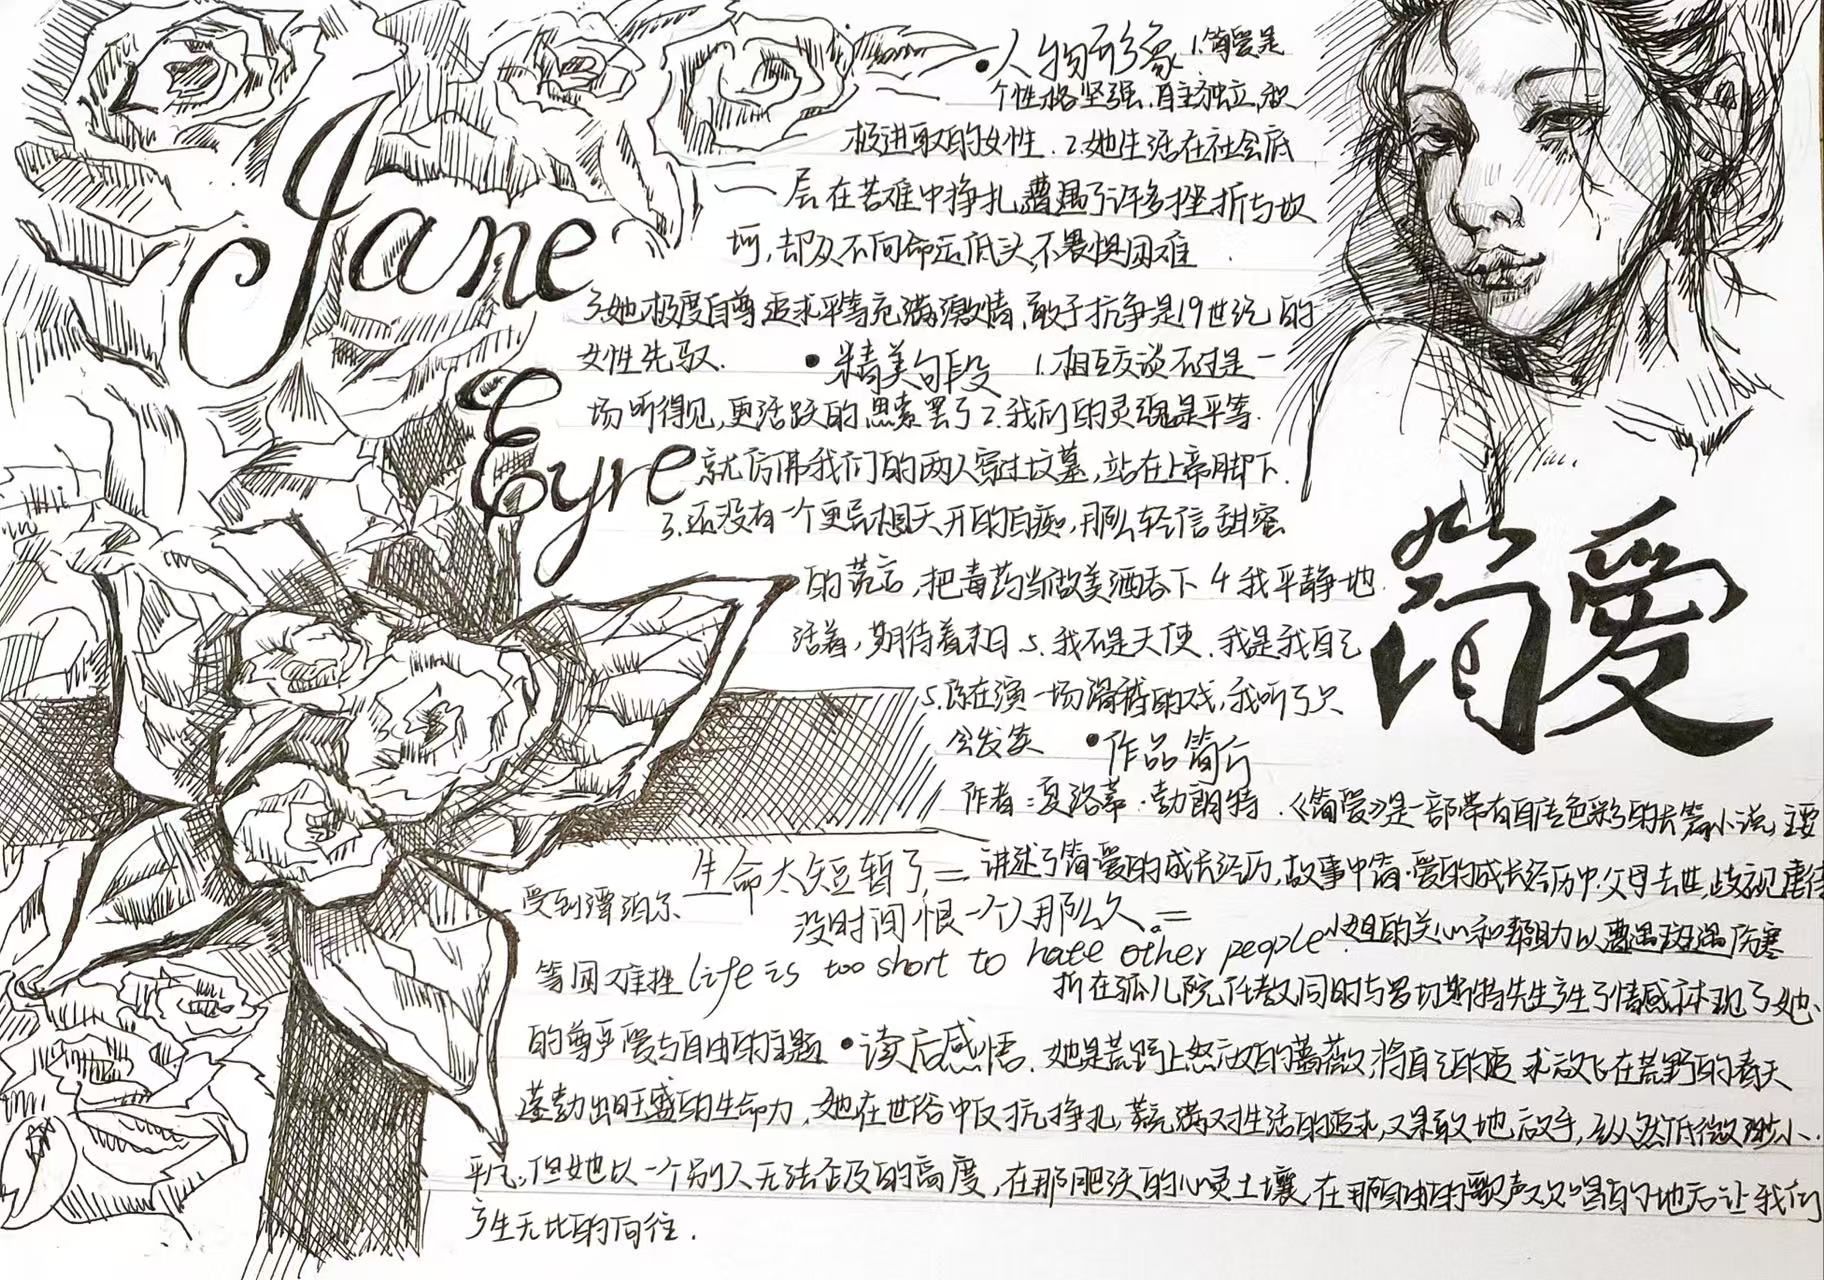 Jane
Eyre
简爱
•人物形象 1.简爱是
个性格坚强、自主独立,积
极进取的女性.2.她生活在社会底
层在苦难中挣扎遭遇了许多挫折与坎
坷,却从不向命运低头,不畏惧困难.
3她极度自尊追求平等充满激情、敢于抗争是19世纪的
女性先驭. •精美句段 1.相互交谈不过是一
场听得见,更活跃的思索罢了2.我们的灵魂是平等.
就仿佛我们的两人穿过坟墓,站在上帝脚下.
3.还没有一个更异想天开的白痴,那么轻信甜蜜
的荒言,把毒药当做美酒吞下 4 我平静地
活着,期待着末日 5.我不是天使.我是我自己
5.你在演一场滑稽的戏,我听了只
会发笑 •作品简介
作者:夏洛蒂·勃朗特.《简爱》是一部带有自传色彩的长篇小说,主要
讲述了简·爱的成长经历,故事中简·爱的成长经历中.父母去世,歧视虐待
生命太短暂了,=
受到谭泊尔
没时间恨一个人那么久。=
小姐的关心和帮助以遭遇 厉寒
等困难挫
Life is too short to hate other people.
折在孤儿院任教同时与罗切斯特先生产生了情感体现了她
的尊严爱与自由的主题 •读后感悟. 她是荒野上怒放的蔷薇,将自己的追求放飞在荒野的春天
蓬勃出旺盛的生命力,她在世俗中反抗挣扎,充满对生活的追求,又果敢地放手,纵然低微渺小.
平凡,但她以一个别人无法企及的高度,在那肥沃的心灵土壤,在那自由的歌声 唱的 让我们
产生无比的向往.